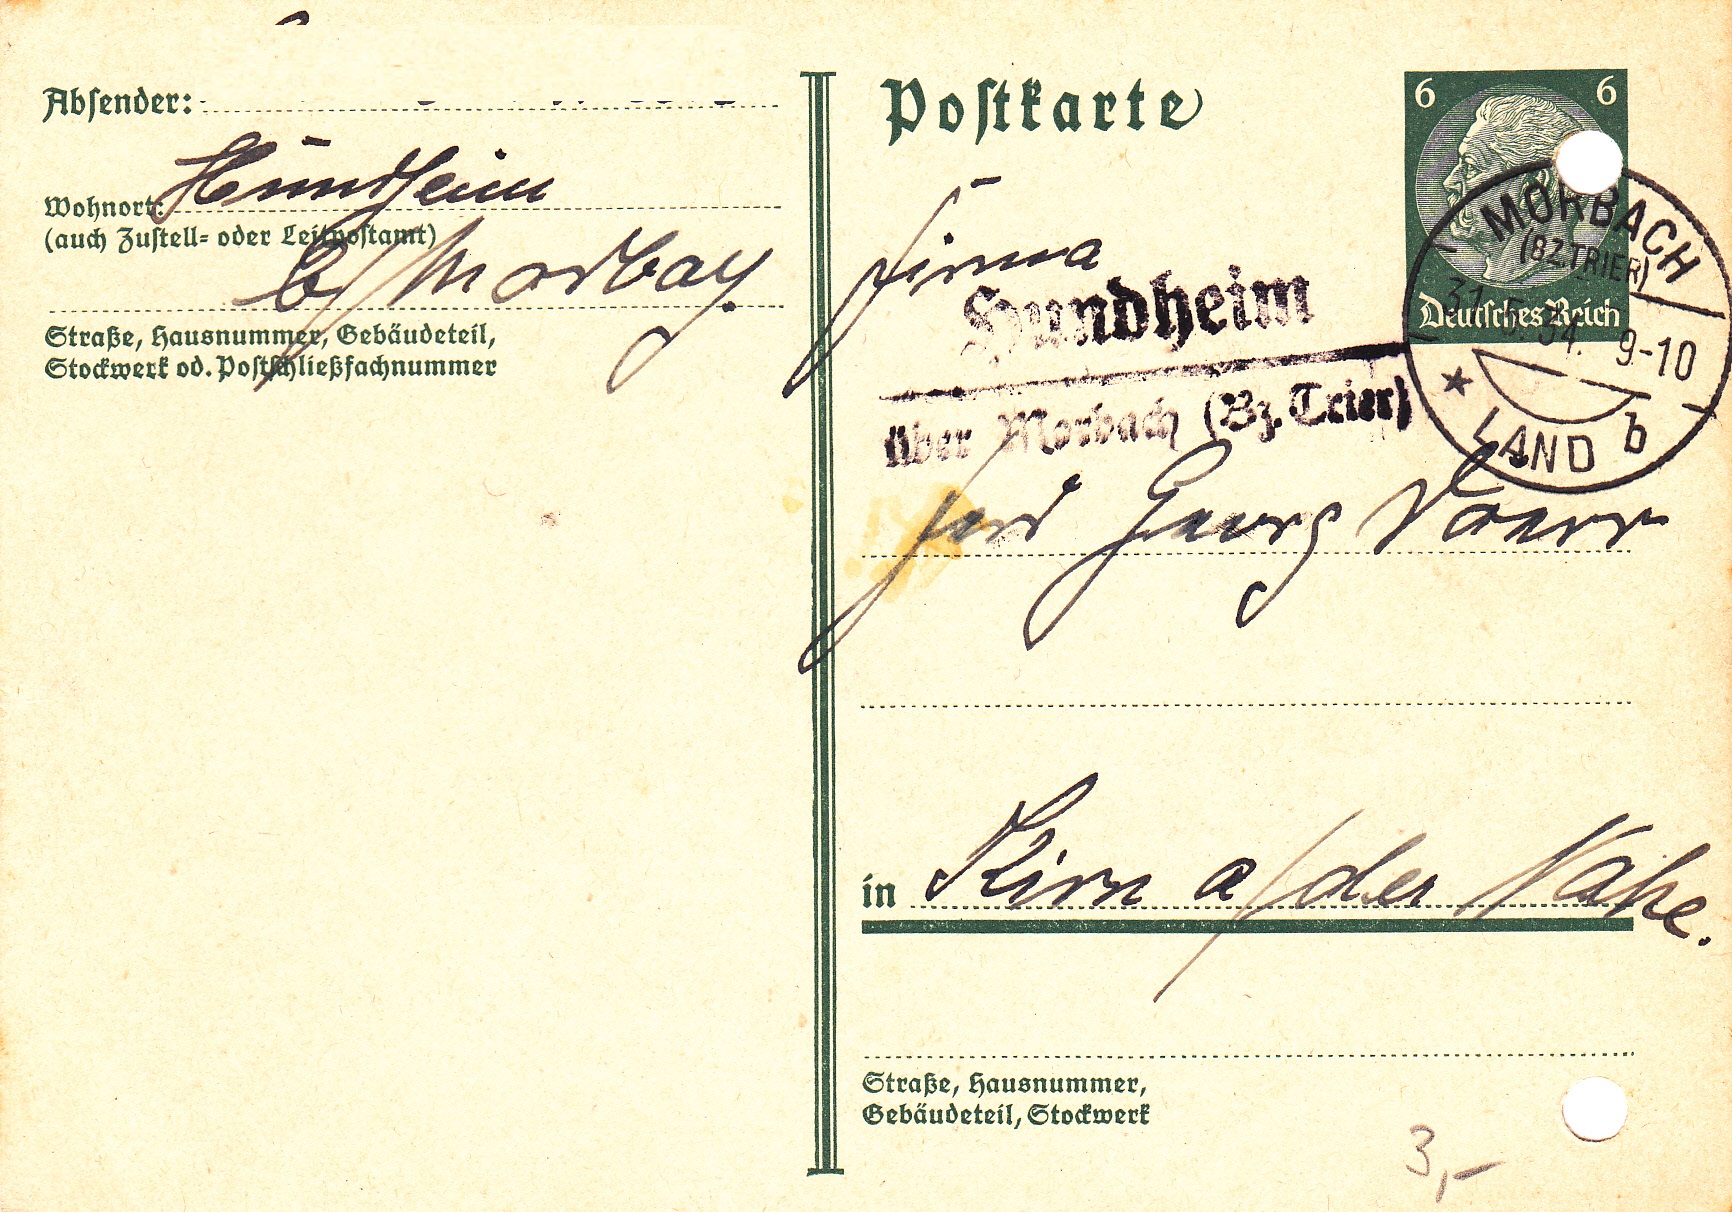 Absender:
Hundheim
Wohnort:
(auch Zustell- oder Leitpostamt)
b/Morbach
Straße, Hausnummer, Gebäudeteil,
Stockwerk od. Postschließfachnummer
Postkarte
6 6
Deutsches Reich
MORBACH
(BZ.TRIER)
31.5.34. 9-10
LAND b
Firma
Hundheim
über Morbach (Bz. Trier)
Georg
in Kirn a/der Nahe.
Straße, Hausnummer,
Gebäudeteil, Stockwerk
3,-